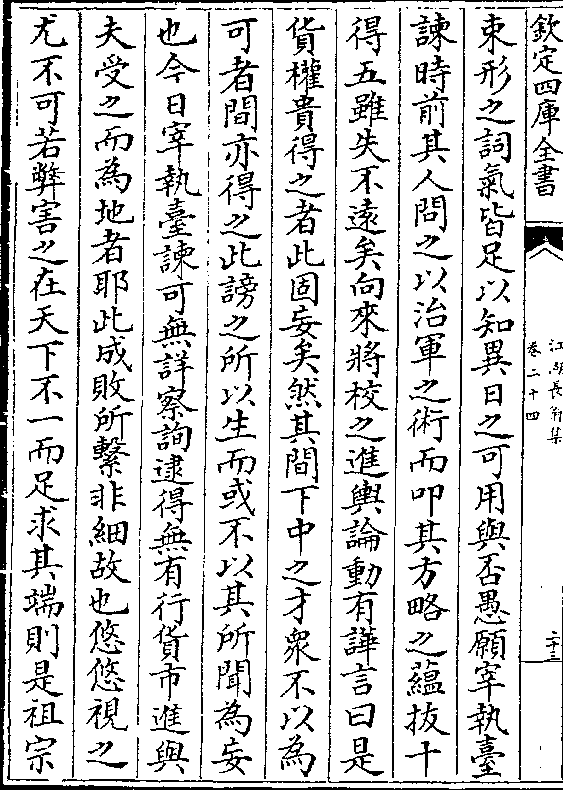 欽定四庫全書
江湖長翁集
卷二十四
二十三
束形之詞氣皆足以知異日之可用與否愚願宰執臺
諫時前其人問之以治軍之術而叩其方略之蘊拔十
得五雖失不遠矣向來將校之進輿論動有譁言曰是
貨權貴得之者此固妄矣然其間下中之才衆不以為
可者間亦得之此謗之所以生而或不以其所聞為妄
也今日宰執臺諫可無詳察詢逮得無有行貨市進與
夫受之而為地者耶此成敗所繫非細故也悠悠視之
尤不可若弊害之在天下不一而足求其端則是祖宗